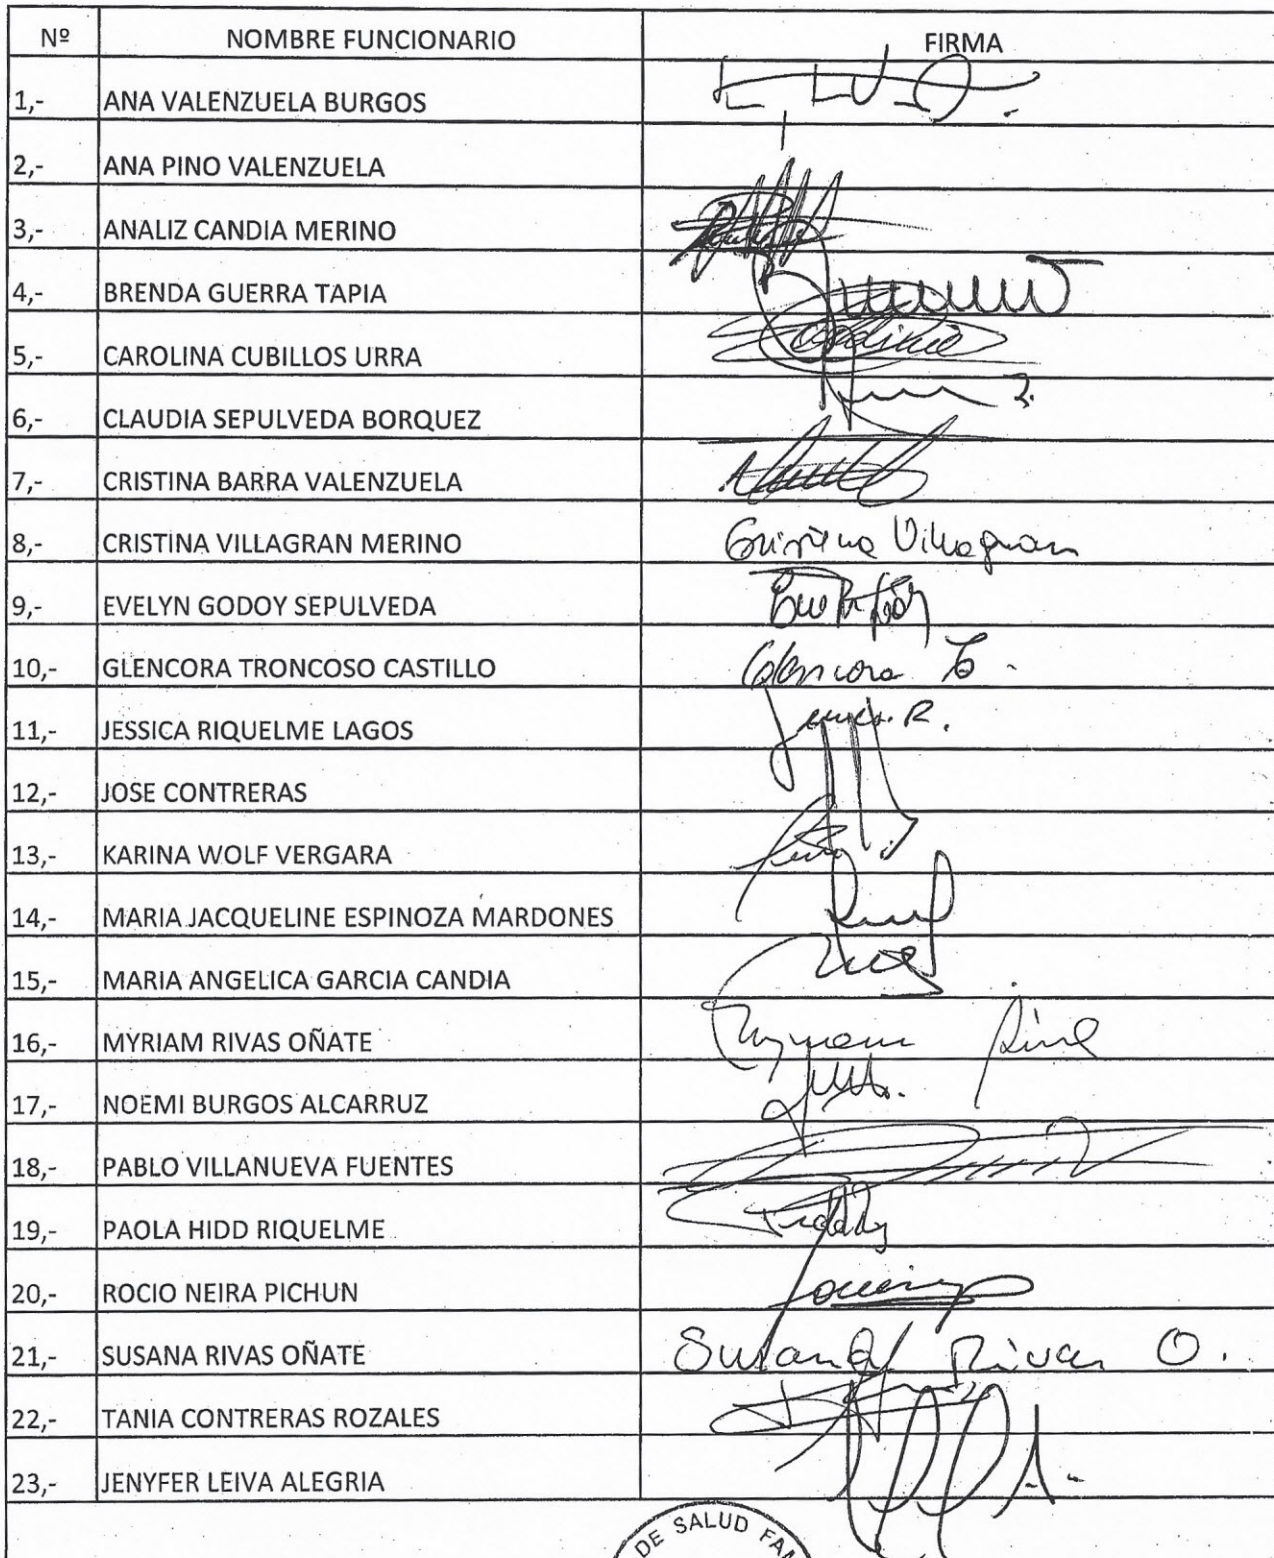 Nº NOMBRE FUNCIONARIO FIRMA
1,- ANA VALENZUELA BURGOS
2,- ANA PINO VALENZUELA
3,- ANALIZ CANDIA MERINO
4,- BRENDA GUERRA TAPIA
5,- CAROLINA CUBILLOS URRA
6,- CLAUDIA SEPULVEDA BORQUEZ
7,- CRISTINA BARRA VALENZUELA
8,- CRISTINA VILLAGRAN MERINO Cristina Villagran
9,- EVELYN GODOY SEPULVEDA
10,- GLENCORA TRONCOSO CASTILLO Glencora T.
11,- JESSICA RIQUELME LAGOS
12,- JOSE CONTRERAS
13,- KARINA WOLF VERGARA
14,- MARIA JACQUELINE ESPINOZA MARDONES
15,- MARIA ANGELICA GARCIA CANDIA
16,- MYRIAM RIVAS OÑATE Myriam
17,- NOEMI BURGOS ALCARRUZ
18,- PABLO VILLANUEVA FUENTES
19,- PAOLA HIDD RIQUELME
20,- ROCIO NEIRA PICHUN
21,- SUSANA RIVAS OÑATE Susana Rivas O.
22,- TANIA CONTRERAS ROZALES
23,- JENYFER LEIVA ALEGRIA
DE SALUD FAM